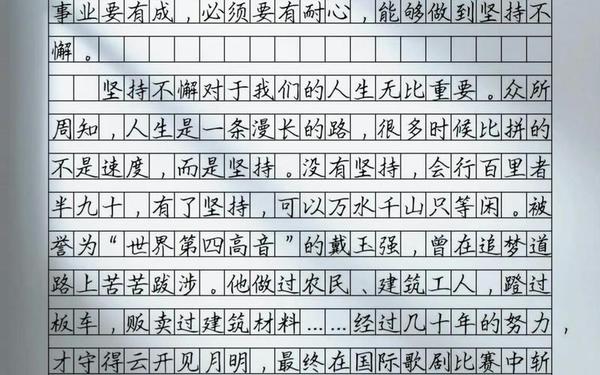 事业要有成，必须要有耐心，能够做到坚持不
懈。
坚持不懈对于我们的人生无比重要。众所
周知，人生是一条漫长的路，很多时候比拼的
不是速度，而是坚持。没有坚持，会行百里者
半九十，有了坚持，可以万水千山只等闲。被
誉为“世界第四高音”的戴玉强，曾在追梦道
路上苦苦跋涉。他做过农民、建筑工人，蹬过
板车，贩卖过建筑材料……经过几十年的努力，
才守得云开见月明，最终在国际歌剧比赛中斩